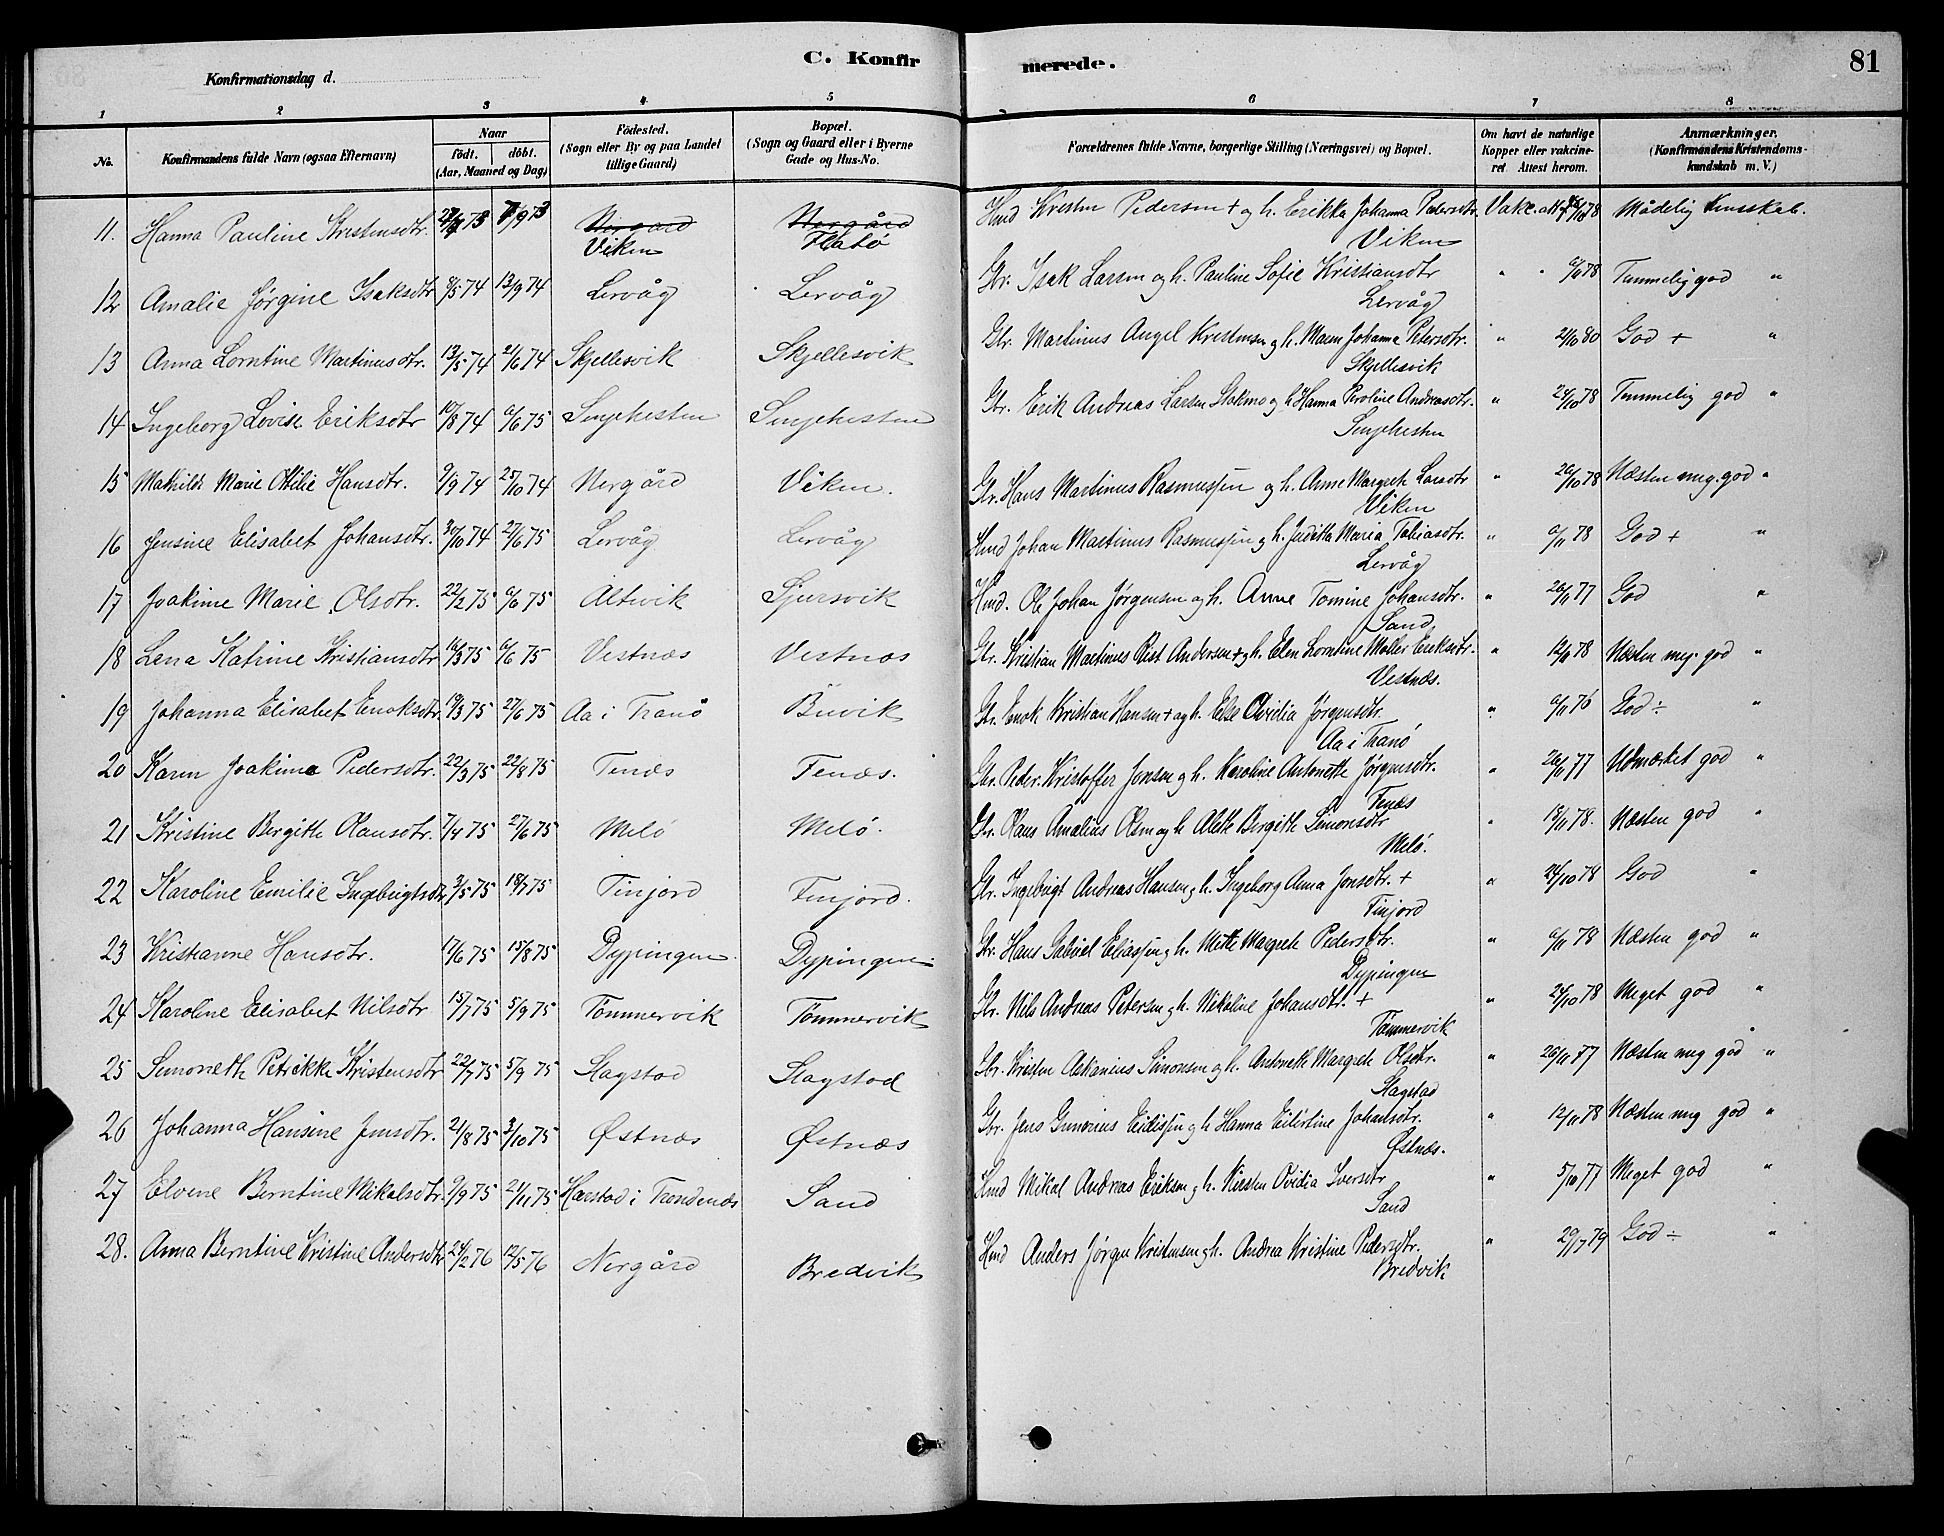 C. Konfir merede. 81
Konfirmationsdag d.
1 2 3 4 5 6 7 8
No. Konfirmandens fulde Navn (ogsaa Efternavn) Naar födt. döbt. (Aar, Maaned og Dag) Födested. (Sogn eller By og paa Landet tillige Gaard) Bopæl. (Sogn og Gaard eller i Byerne Gade og Hus-No. Forældrenes fulde Navne, borgerlige Stilling (Næringsvei) og Bopæl. Om havt de naturlige Kopper eller vakcineret Attest herom. Anmærkninger. (Konfirmandens Kristendomskundskab m. V.)
11. Hanna Pauline Kristensdtr. 73 7/9 73 Nergård Nergård Hmd Kresten Pedersen + og h. Erikka Johanna Pedersdtr. Vakc. att. 78 Mådelig kunsskab.
Viken Flatö Viken
12 Amalie Jørgine Isaksdtr 9/5 74 13/9 74 Lervåg Lervåg Gbr. Isak Larsen og h. Pauline Sofie Kristiansdtr " " 6/11 78 Temmelig god "
Lervåg
13 Anna Lorntine Martinusdtr. 13/5 74 21/6 74 Skjellesvik Skjellesvik Gbr. Martinus Angel Krestensen og h. Maren Johanna Petersdtr. " 21/10 80 God + "
Skjellesvik
14 Ingeborg Lovise Eriksdtr 10/8 74 6/6 75 Senjehesten Senjehesten Gbr. Erik Andreas Larsen Stokmo og h Hanna Peroline Andreasdtr. " 24/10 78 Temmelig god "
Senjehesten
15 Mathilde Marie Otilie Hansdtr. 9/9 74 25/10 74 Nergård Viken. Gbr. Hans Martinus Rasmussen og h. Anne Margreth Larsdtr " 26/10 78 Næsten meg. god "
Viken
16 Jensine Elisabet Johansdtr. 30/10 74 27/6 75 Lervåg Lervåg Hmd Johan Martinus Rasmussen og h. Juditta Maria Tobiasdtr. " 6/11 78 God + "
Lervåg
17 Joakime Marie Olsdtr. 22/2 75 6/6 75 Altvik Sjursvik Hmd. Ole Johan Jørgensen og h. Anne Tomine Johansdtr. " 26/11 77 God "
Sand
18 Lena Katrine Kristiansdtr 16/3 75 6/6 75 Vestnæs Vestnæs Gbr. Kristian Martinus Rist Andersen + og h. Elen Lorntine Møller Eriksdtr. " 12/11 78 Næsten meg. god "
Vestnæs.
19 Johanna Elisabet Enoksdtr. 19/3 75 27/6 75 Aa i Tranö Buvik Gbr. Enok Kristian Hansen + og h. Else Ovidia Jørgensdtr. " 6/11 76 God ÷ "
Aa i Tranö
20 Karen Joakima Pedersdtr. 22/3 75 22/8 75 Tenæs Tenæs. Gbr. Peder Kristoffer Jensen og h. Karoline Antonette Jørgensdtr. " 26/11 77 Udmærket god "
Tenæs
21 Kristine Bergitte Olausdtr. 7/4 75 27/6 75 Melö Melö. Gbr. Olaus Amalius Olsen og h Alette Birgitte Simonsdtr " 13/11 78. Næsten god "
Melö.
22 Karoline Emilie Ingebrigtsdtr 3/5 75 18/7 75 Finjord Finjord. Gbr. Ingebrigt Andreas Hansen og h. Ingeborg Anna Jonsdtr. + " 24/10 78 God "
Finjord
23 Kristianne Hansdtr. 17/6 75 15/8 75 Dypingen Dypingen. Gbr. Hans Gabriel Eliassen og h. Mette Margreth Pedersdtr. " 6/11 78 Næsten god "
Dypingen
24 Karoline Elisabet Nilsdtr 15/7 75 5/9 75 Tömmervik Tömmervik Gbr. Nils Andreas Petersen og h. Nikoline Johansdtr. + " 24/10 78 Meget god "
Tömmervik
25 Simoneth Petrikke Kristensdtr 22/7 75 5/9 75 Slagstad Slagstad Gbr. Kristen Askanius Simonsen og h. Antoneth Margreth Olsdtr. " 26/11 77 Næsten meg god "
Slagstad
26 Johanna Hansine Jensdtr. 21/8 75 3/10 75 Østnæs Østnæs Gbr. Jens Gunerius Eidissen og h Hanna Eilertine Johansdtr. " 12/11 78 Næsten meg god "
Østnæs.
27 Elvine Berntine Mikalsdtr. 9/9 75 21/11 75 Harstad i Trondenæs Sand Hmd Mikal Andreas Eriksen og h. Kirsten Ovidia Iversdtr " 5/10 77 Meget god "
Sand
28. Anna Berntine Kristine Andersdtr 24/2 76 12/5 76 Nergård Bredvik Hmd Anders Jørgen Kristensen og h. Andrea Kristine Pedersdtr. " 29/7 79 God ÷ "
Bredvik